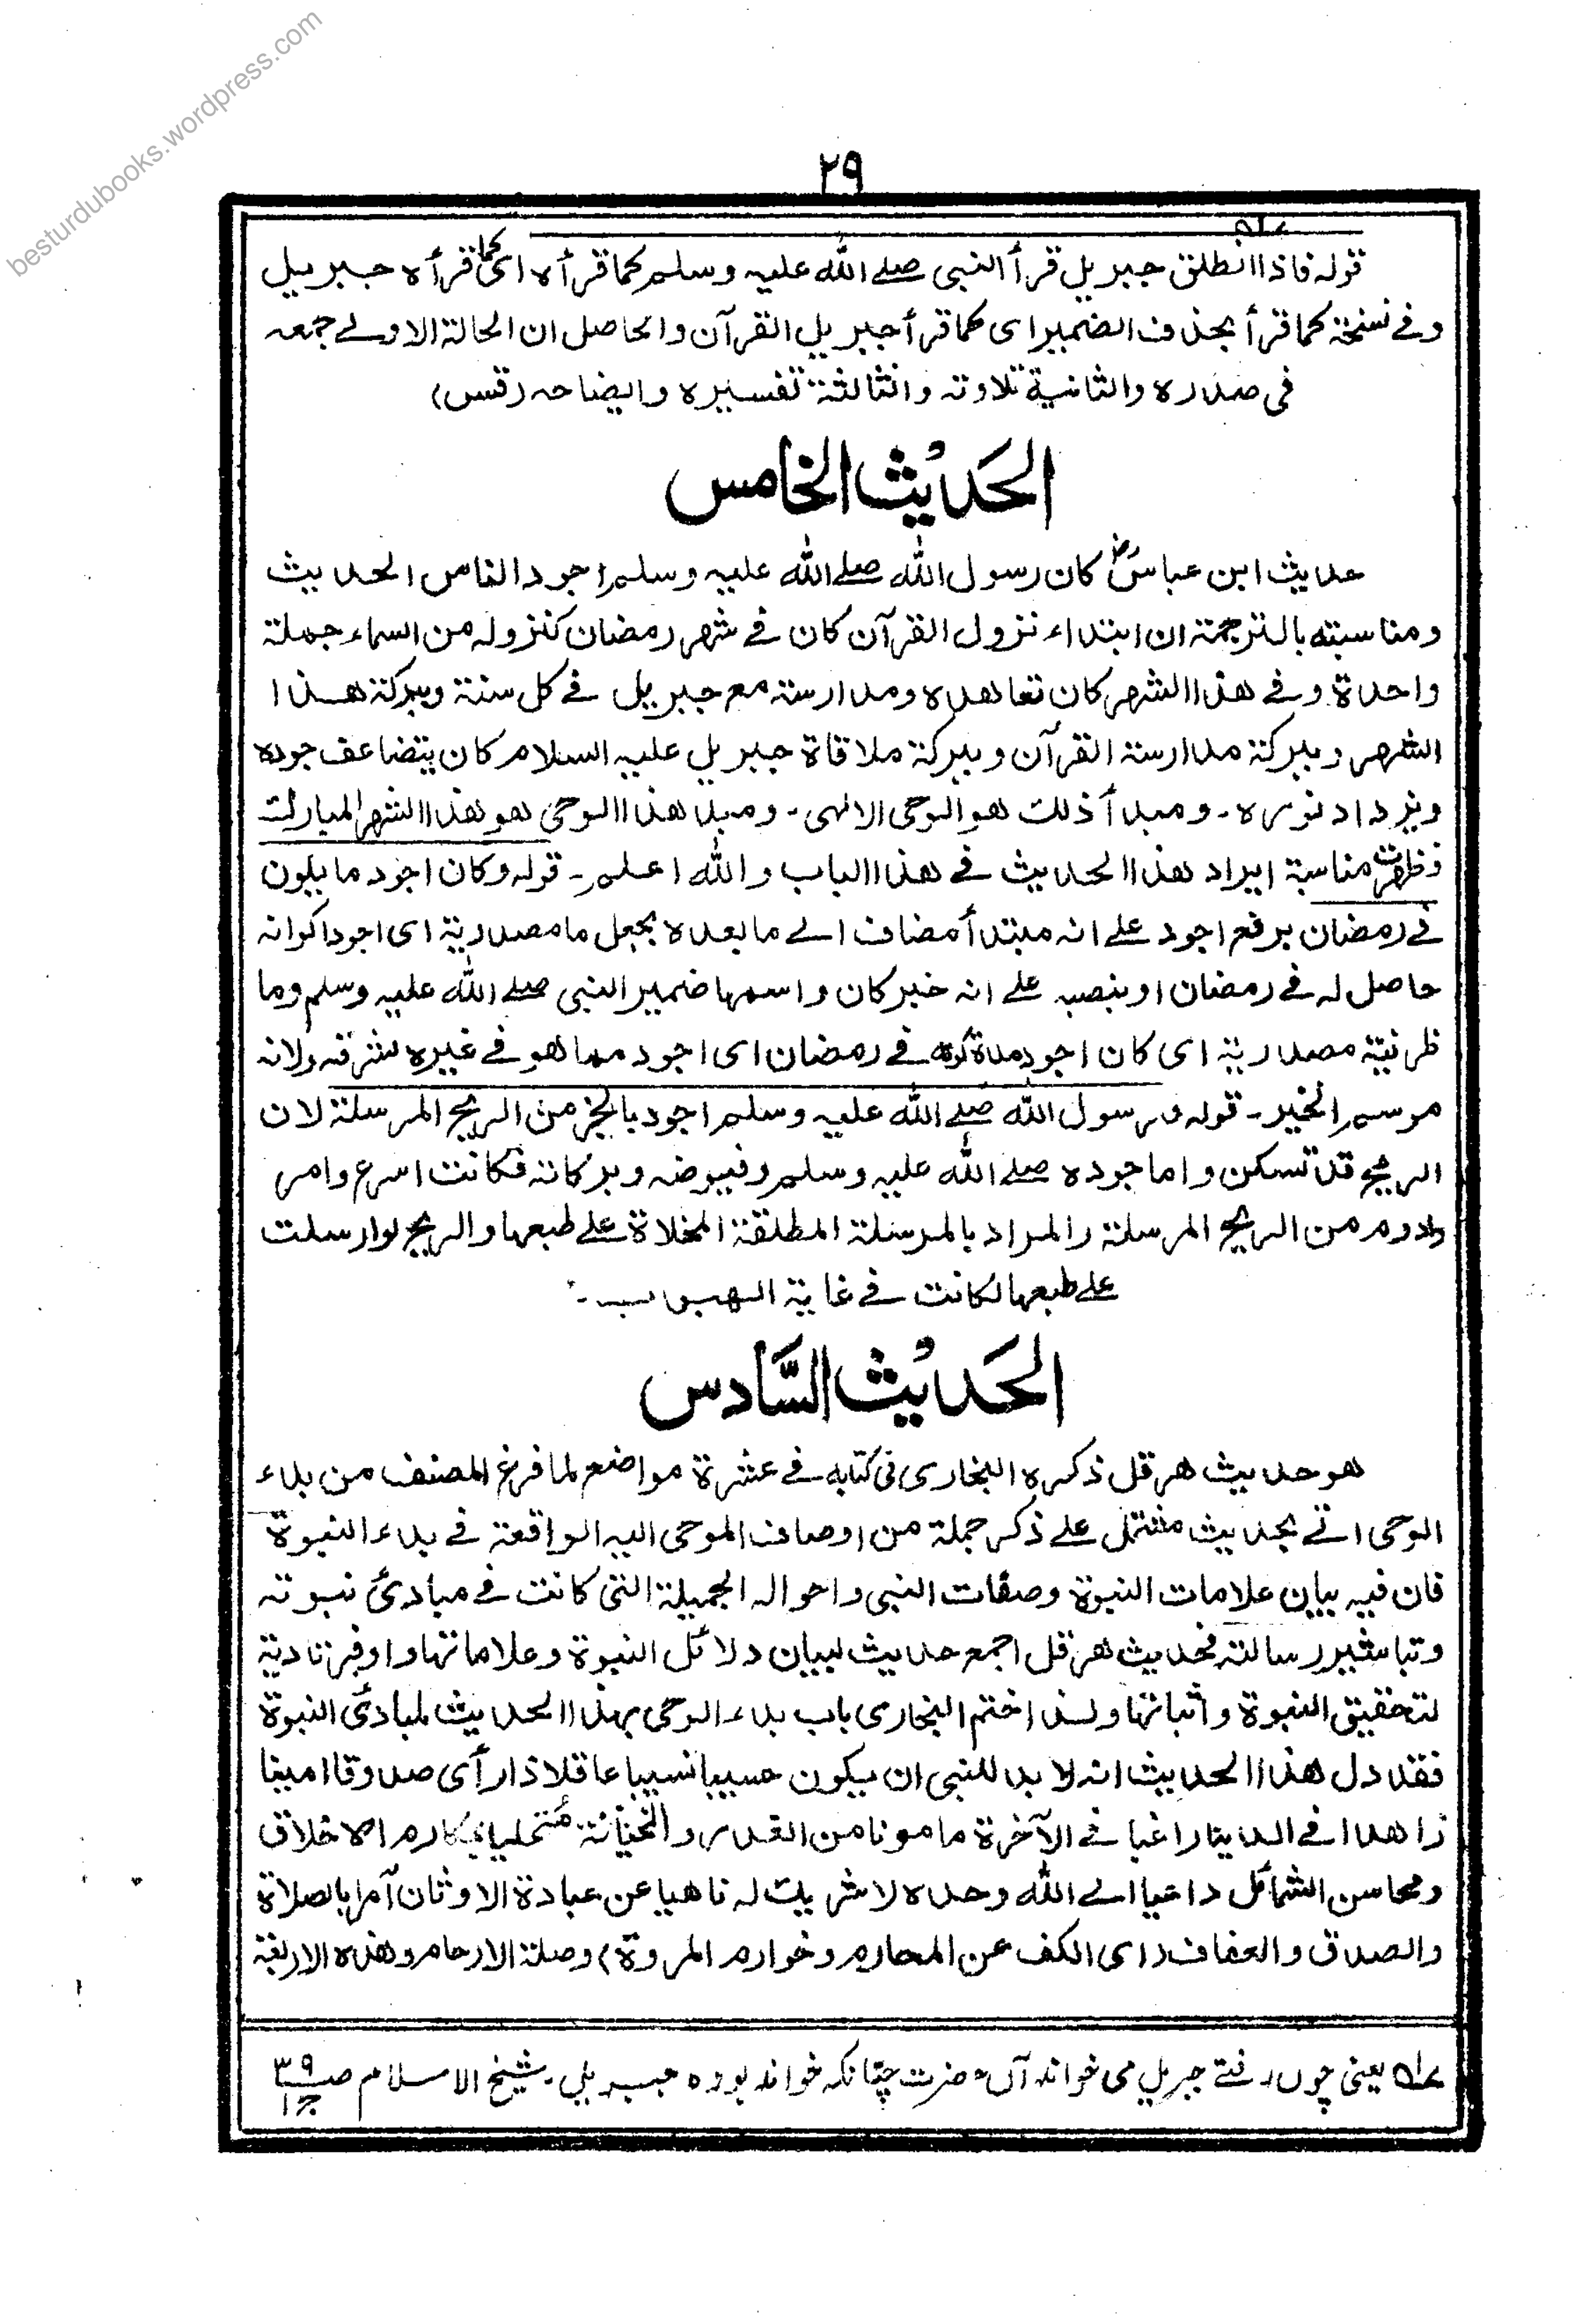 besturdubooks.wordpress.com
٢٩
قوله فاذا انطلق جبريل قرأ النبى صلے الله عليه وسلم كما قرأه اى كما قرأه جبريل
وفے نسخة كما قرأ بحذف الضمير اى كما قرأ جبريل القرآن والحاصل ان الحالة الاولے جمعه
فى صدره والثانية تلاوته والثالثة تفسيره وايضاحه (قس)
الحَديْثُ الخامس
حديث ابن عباسؓ كان رسول الله صلے الله عليه وسلم اجود الناس الحديث
ومناسبته بالترجمة ان ابتداء نزول القرآن كان فے شهر رمضان كنزوله من السماء جملة
واحدة وفے هذا الشهر كان تعاهده ومدارسته مع جبريل فے كل سنة وببركة هذا
الشهر وببركة مدارسة القرآن وببركة ملاقاة جبريل عليه السلام كان يتضاعف جوده
ويزداد نوره۔ ومبدأ ذلك هو الوحى الالهى۔ ومبدأ هذا الوحى هو هذا الشهر المبارك
فظهرت مناسبة ايراد هذا الحديث فے هذا الباب والله اعلم۔ قوله وكان اجود ما يكون
فے رمضان برفع اجود علے انه مبتدأ مضاف الے ما بعده بجعل ما مصدرية اى اجود اكوانه
حاصل له فے رمضان او بنصبه علے انه خبر كان واسمها ضمير النبى صلے الله عليه وسلم وما
ظرفية مصدرية اى كان اجود مدة كونه فے رمضان اى اجود مما هو فے غيره لشرفه ولانه
موسم الخير۔ قوله فرسول الله صلے الله عليه وسلم اجود بالخير من الريح المرسلة لان
الريح قد تسكن واما جوده صلے الله عليه وسلم وفيوضه وبركاته فكانت اسرع وامر
وادوم من الريح المرسلة والمراد بالمرسلة المطلقة المخلاة علے طبعها والريح لو ارسلت
علے طبعها لكانت فے غاية الهبوب۔
الحَديْثُ السَّادس
هو حديث هرقل ذكره البخارى فى كتابه فے عشرة مواضع لما فرغ المصنف من بدء
الوحى اتے بحديث مشتمل علے ذكر جملة من اوصاف الموحى اليه الواقعة فے بدء النبوة
فان فيه بيان علامات النبوة وصفات النبى واحواله الجميلة التى كانت فے مبادئ نبوته
وتباشير رسالته فحديث هرقل اجمع حديث لبيان دلائل النبوة وعلاماتها واوفر تادية
لتحقيق النبوة واثباتها ولذا ختم البخارى باب بدء الوحى بهذا الحديث لمبادئ النبوة
فقد دل هذا الحديث انه لا بد للنبى ان يكون حسيبا نسيبا عاقلا ذا رأى صدوقا امينا
زاهدا فے الدنيا راغبا فے الآخرة مامونا من الغدر والخيانة مُتحليا بمكارم الاخلاق
ومحاسن الشمائل داعيا الے الله وحده لا شريك له ناهيا عن عبادة الاوثان آمرا بالصلاة
والصدق والعفاف (اى الكف عن المحارم وخوارم المروة) وصلة الارحام وهذه الاربعة
يعنى چوں رفتے جبريل مى خواند آں حضرت چنانكہ خواندہ بودہ جبريل۔ شيخ الاسلام صـ ٣٩ جـ ١